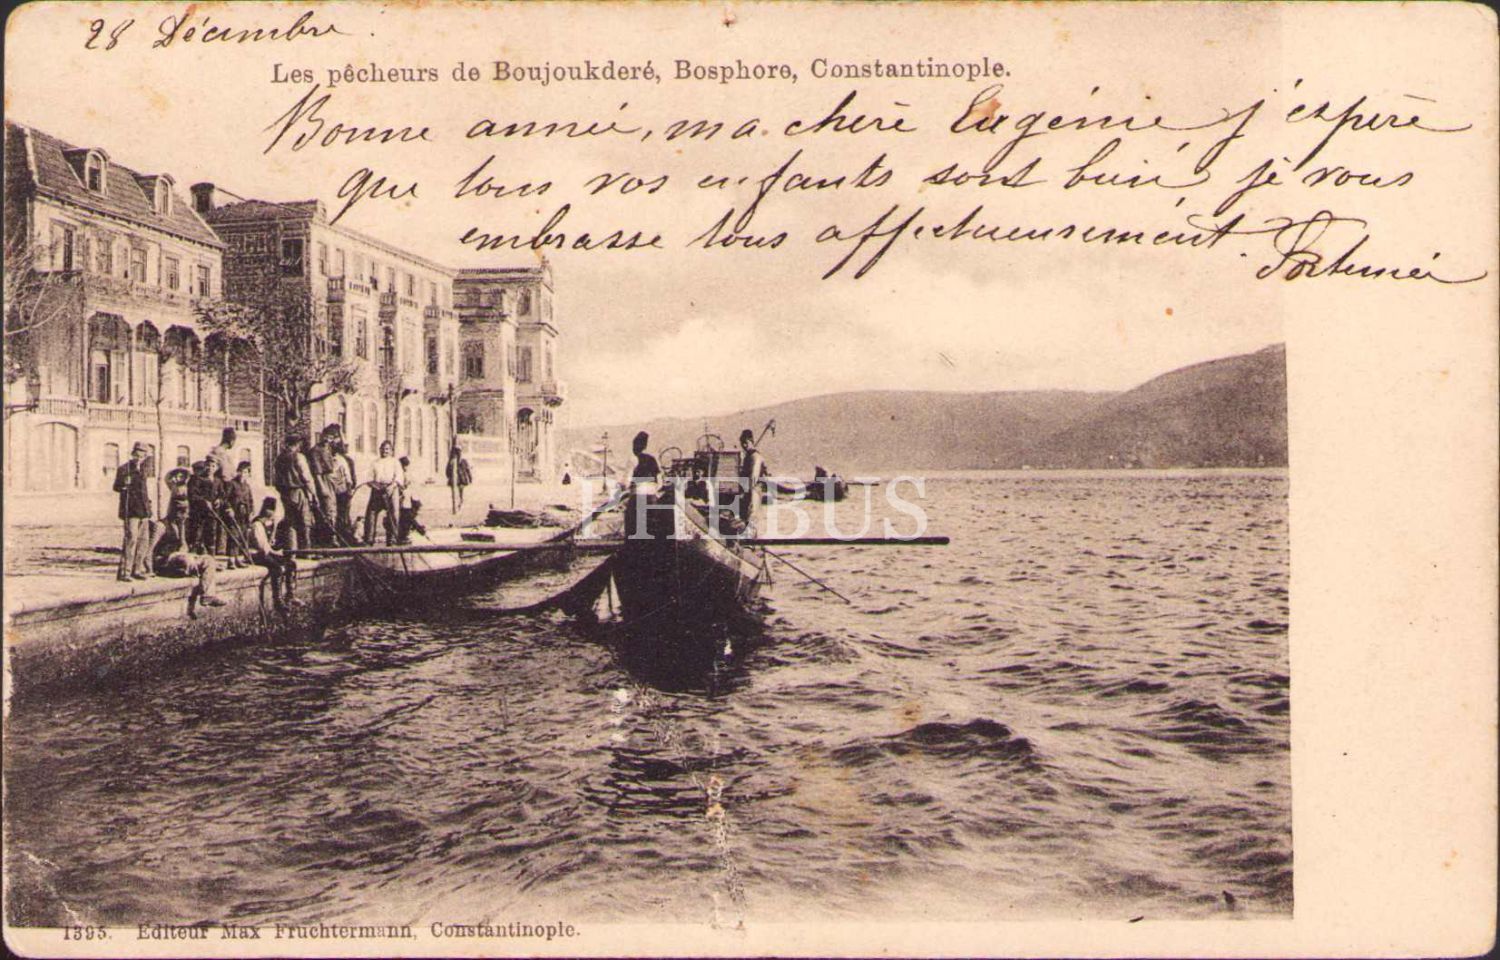 28 Décembre.
Les pêcheurs de Boujoukderé, Bosphore, Constantinople.
Bonne année, ma chère Eugénie j'espère
que tous vos enfants sont bien je vous
embrasse tous affectueusement.
Fortunée
PHEBUS
1395. Editeur Max Fruchtermann, Constantinople.